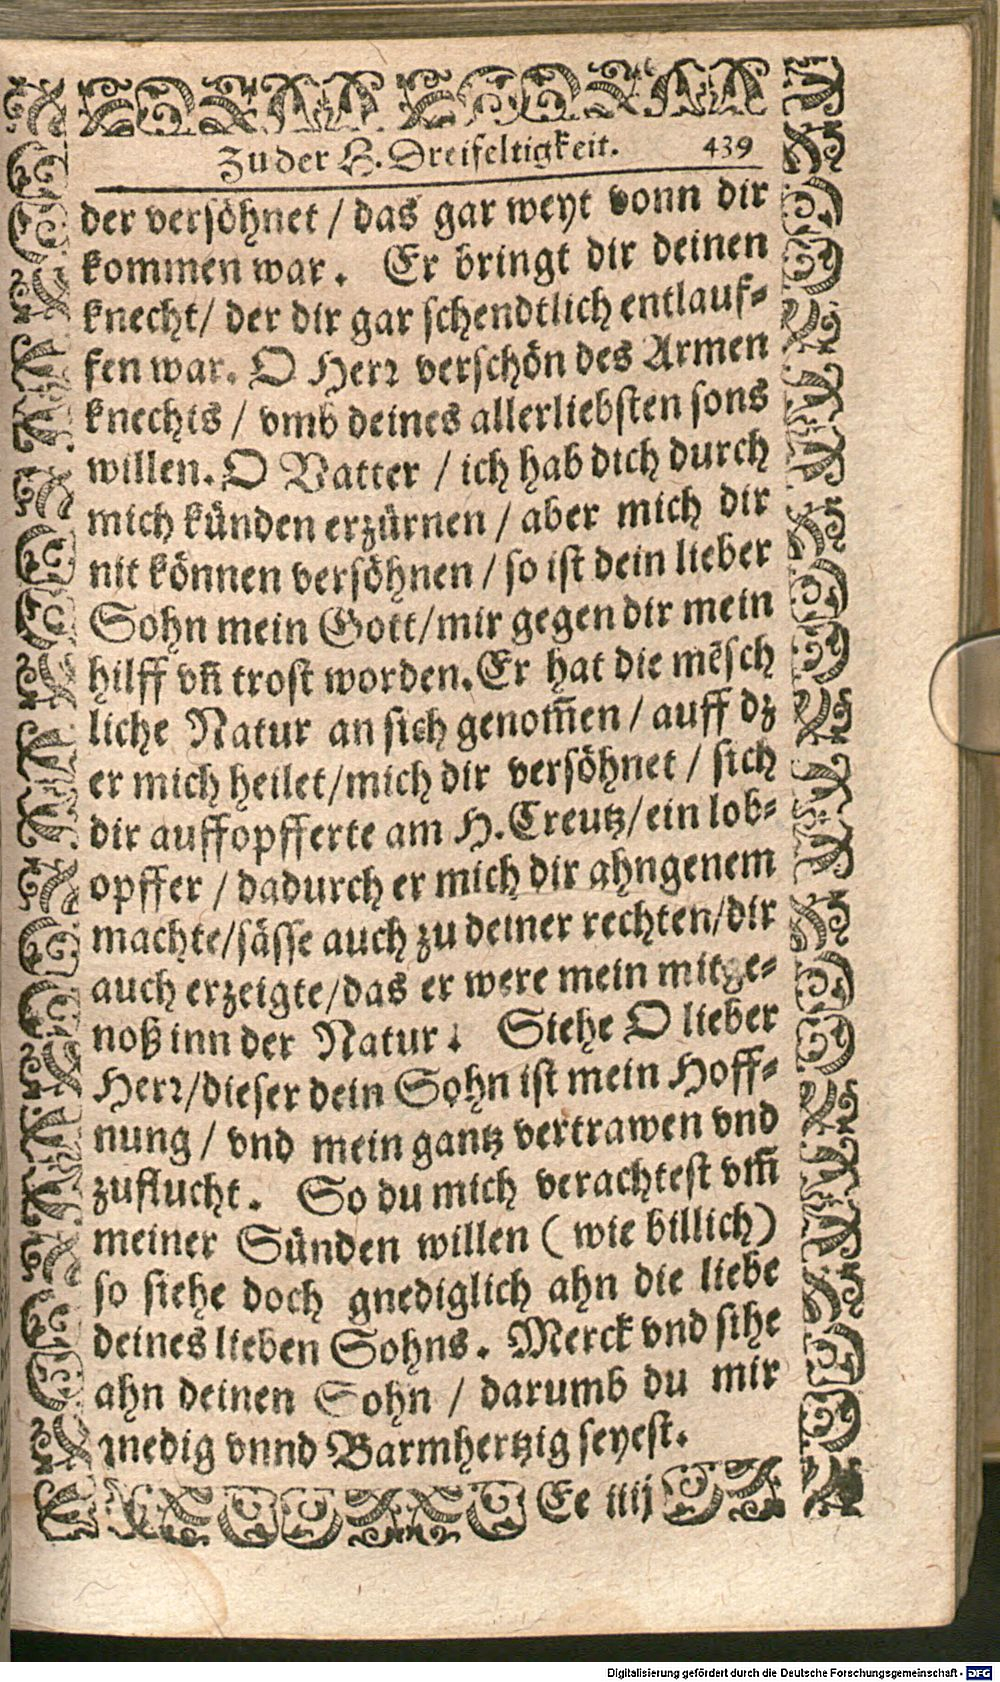 Zu der H. Dreifeltigkeit. 439
der versöhnet / das gar weyt vonn dir
kommen war. Er bringt dir deinen
knecht/ der dir gar schendtlich entlauf-
fen war. O Herr verschön des Armen
knechts / vmb deines allerliebsten sons
willen. O Vatter / ich hab dich durch
mich künden erzürnen / aber mich dir
nit können versöhnen / so ist dein lieber
Sohn mein Gott/mir gegen dir mein
hilff vñ trost worden. Er hat die mẽsch
liche Natur an sich genom̃en / auff dz
er mich heilet/mich dir versöhnet / sich
dir auffopfferte am H. Creutz/ein lob-
opffer / dadurch er mich dir ahngenem
machte/sässe auch zu deiner rechten/dir
auch erzeigte/das er were mein mitge-
noß inn der Natur. Siehe O lieber
Herr/dieser dein Sohn ist mein Hoff-
nung / vnd mein gantz vertrawen vnd
zuflucht. So du mich verachtest vm̃
meiner Sünden willen ( wie billich)
so siehe doch gnediglich ahn die liebe
deines lieben Sohns. Merck vnd sihe
ahn deinen Sohn / darumb du mir
gnedig vnnd Barmhertzig seyest.
Ee iiij
Digitalisierung gefördert durch die Deutsche Forschungsgemeinschaft - DFG